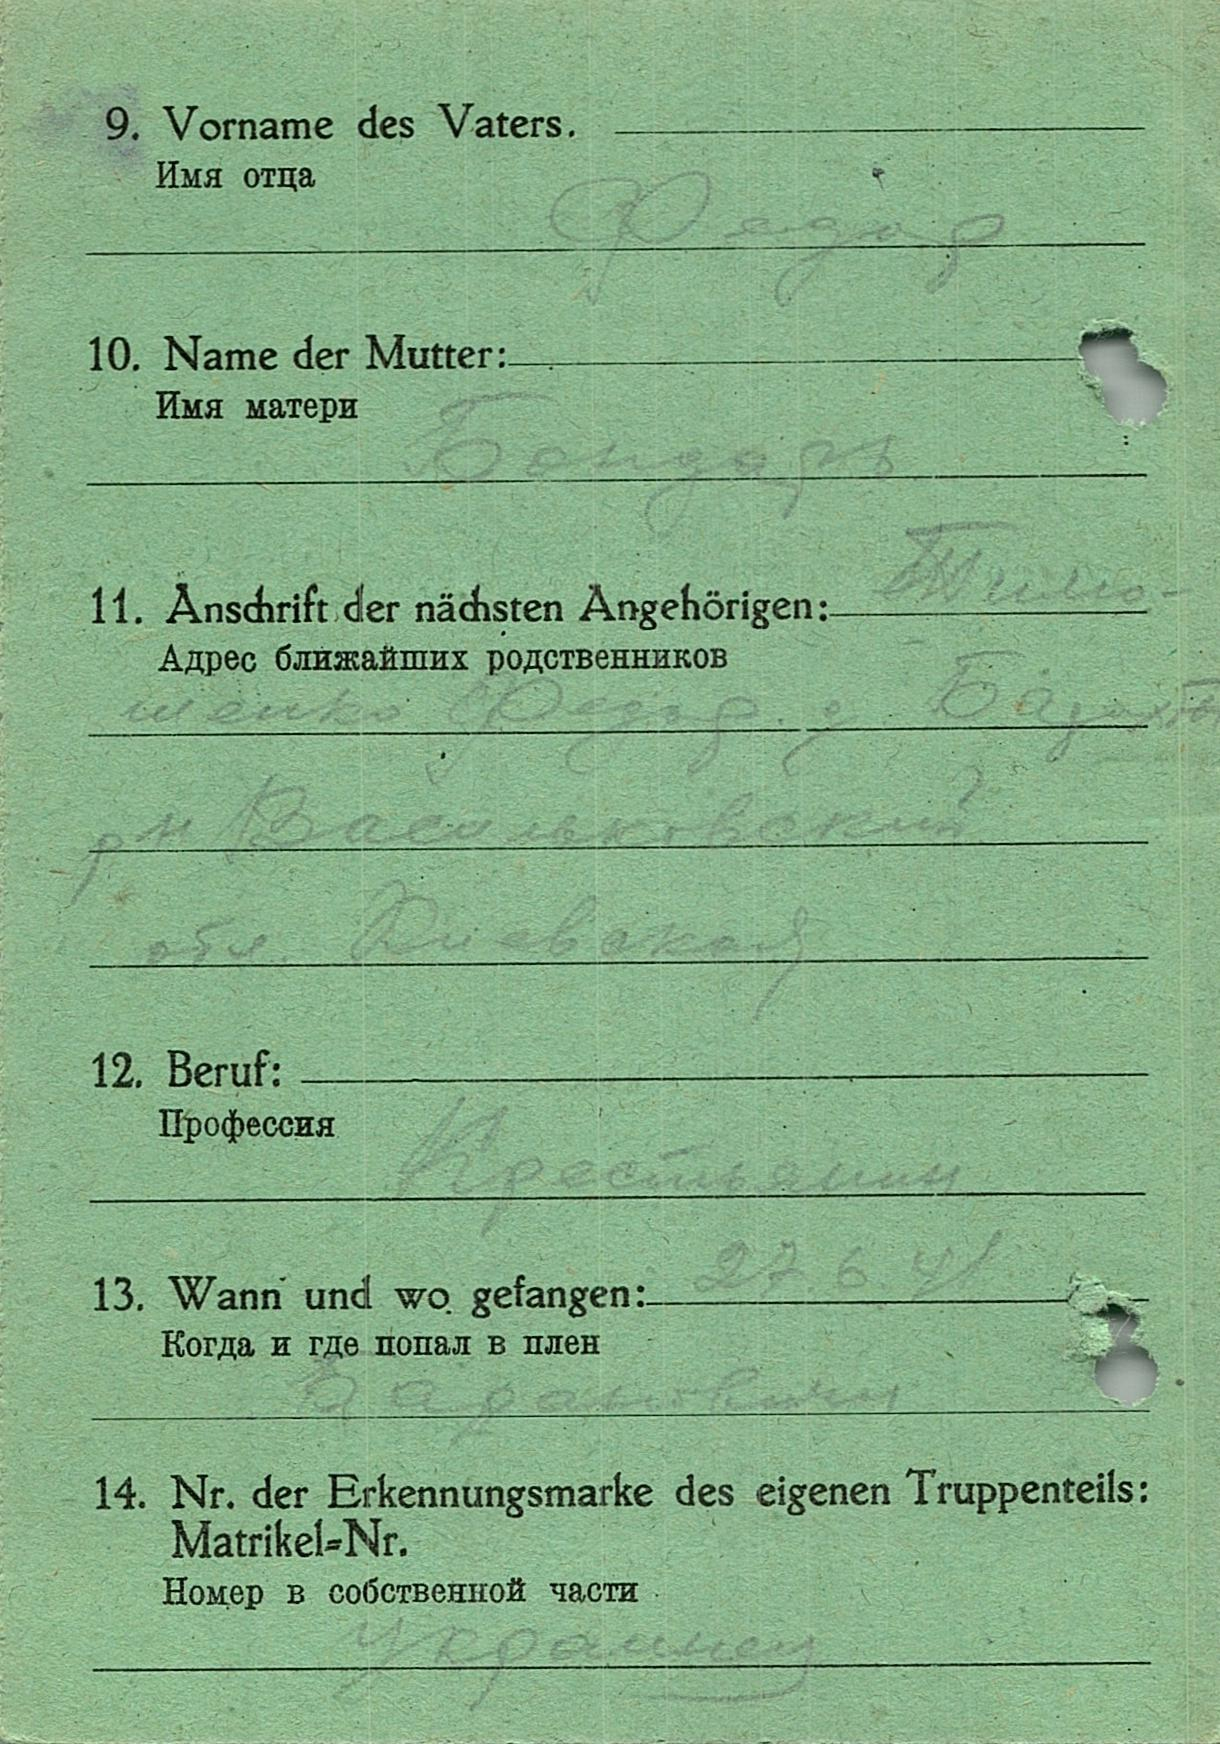 9. Vorname des Vaters.
Имя отца
Федор
10. Name der Mutter:
Имя матери
Бондарь
Тимо-
11. Anschrift der nächsten Angehörigen:
Адрес ближайших родственников
шенко Федор. с
рн Васильковский
обл. Киевская
12. Beruf:
Профессия
Крестьянин
27 6 41
13. Wann und wo gefangen:
Когда и где попал в плен
Барановичи
14. Nr. der Erkennungsmarke des eigenen Truppenteils:
Matrikel-Nr.
Номер в собственной части
украинец